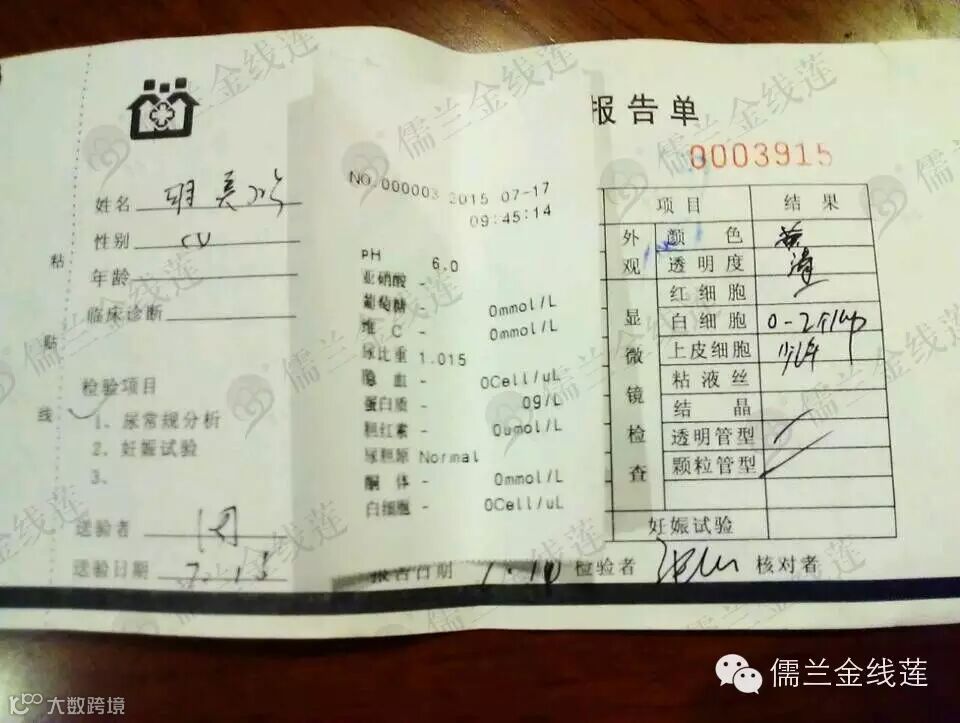 报告单
0003915
姓名
性别
年龄
临床诊断
粘
贴
线
检验项目
1、尿常规分析
2、妊娠试验
3、
送验者
送验日期 7.15
NO.000003 2015 07-17
09:45:14
pH 6.0
亚硝酸 -
葡萄糖 - 0mmol/L
维 C - 0mmol/L
尿比重 1.015
隐 血 - 0Cell/uL
蛋白质 - 0g/L
胆红素 - 0umol/L
尿胆原 Normal
酮 体 - 0mmol/L
白细胞 - 0Cell/uL
项目 结果
外观
颜色 黄
透明度 清
显微镜检查
红细胞
白细胞 0-2个/Hp
上皮细胞 少许
粘液丝
结晶
透明管型
颗粒管型
妊娠试验
报告日期
检验者
核对者
儒兰金线莲
儒兰金线莲
大数跨境